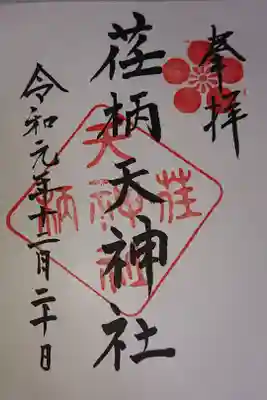 奉拝
荏柄天神社
令和元年十一月二十日
荏柄天神社